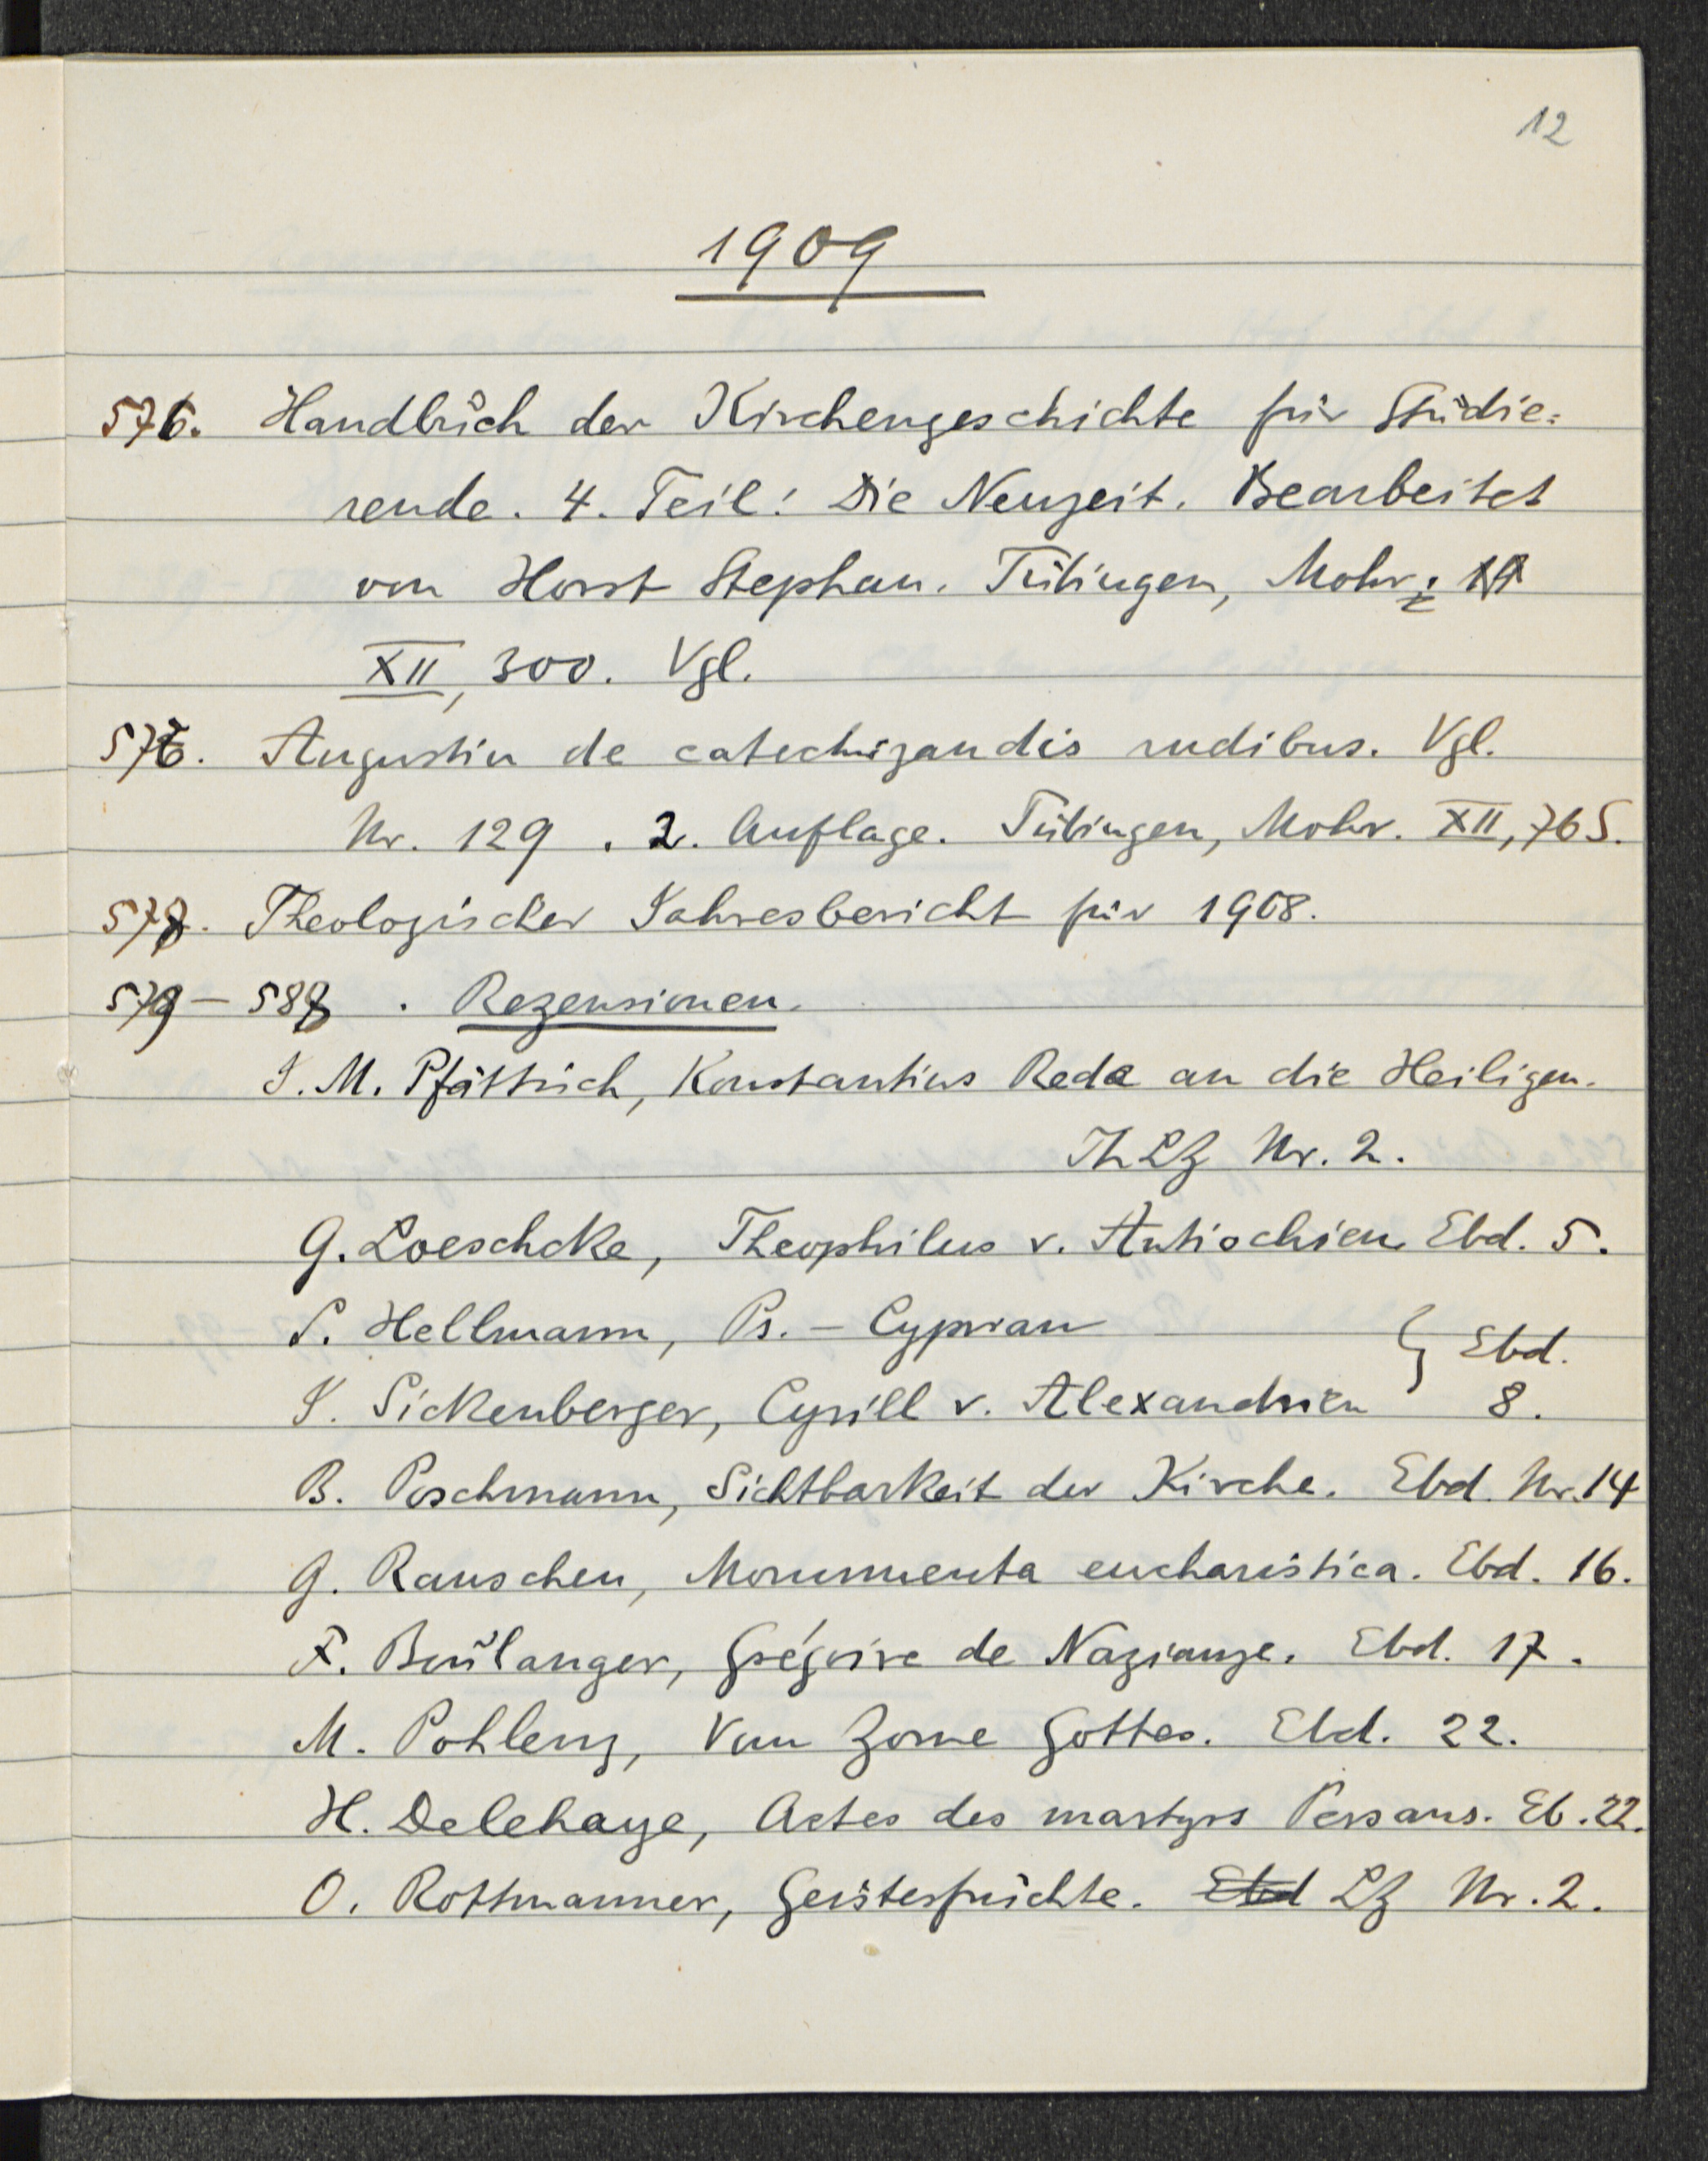 12
1909
576. Handbuch der Kirchengeschichte für Studie:
rende. 4. Teil: Die Neuzeit. Bearbeitet
von Horst Stephan. Tübingen, Mohr.
XII, 300. Vgl.
577. Augustin de catechizandis rudibus. Vgl.
Nr. 129. 2. Auflage. Tübingen, Mohr. XII, 76 S.
578. Theologischer Jahresbericht für 1908.
579 – 588. Rezensionen.
J. M. Pfättisch, Konstantins Rede an die Heiligen.
ThLZ Nr. 2.
G. Loeschcke, Theophilus v. Antiochien Ebd. 5.
S. Hellmann, Ps. - Cyprian } Ebd.
J. Sickenberger, Cyrill v. Alexandrien 8.
B. Poschmann, Sichtbarkeit der Kirche. Ebd. Nr. 14
G. Rauschen, Monumenta eucharistica. Ebd. 16.
F. Boulanger, Grégoire de Nazianze. Ebd. 17.
M. Pohlenz, Vom Zorne Gottes. Ebd. 22.
H. Delehaye, Actes des martyrs Persans. Eb. 22.
O. Rottmanner, Geistesfrüchte. Ebd LZ Nr. 2.